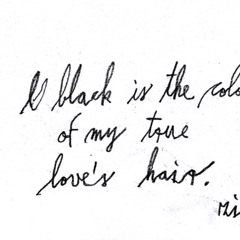 black is the colo
of my true
love's hair.